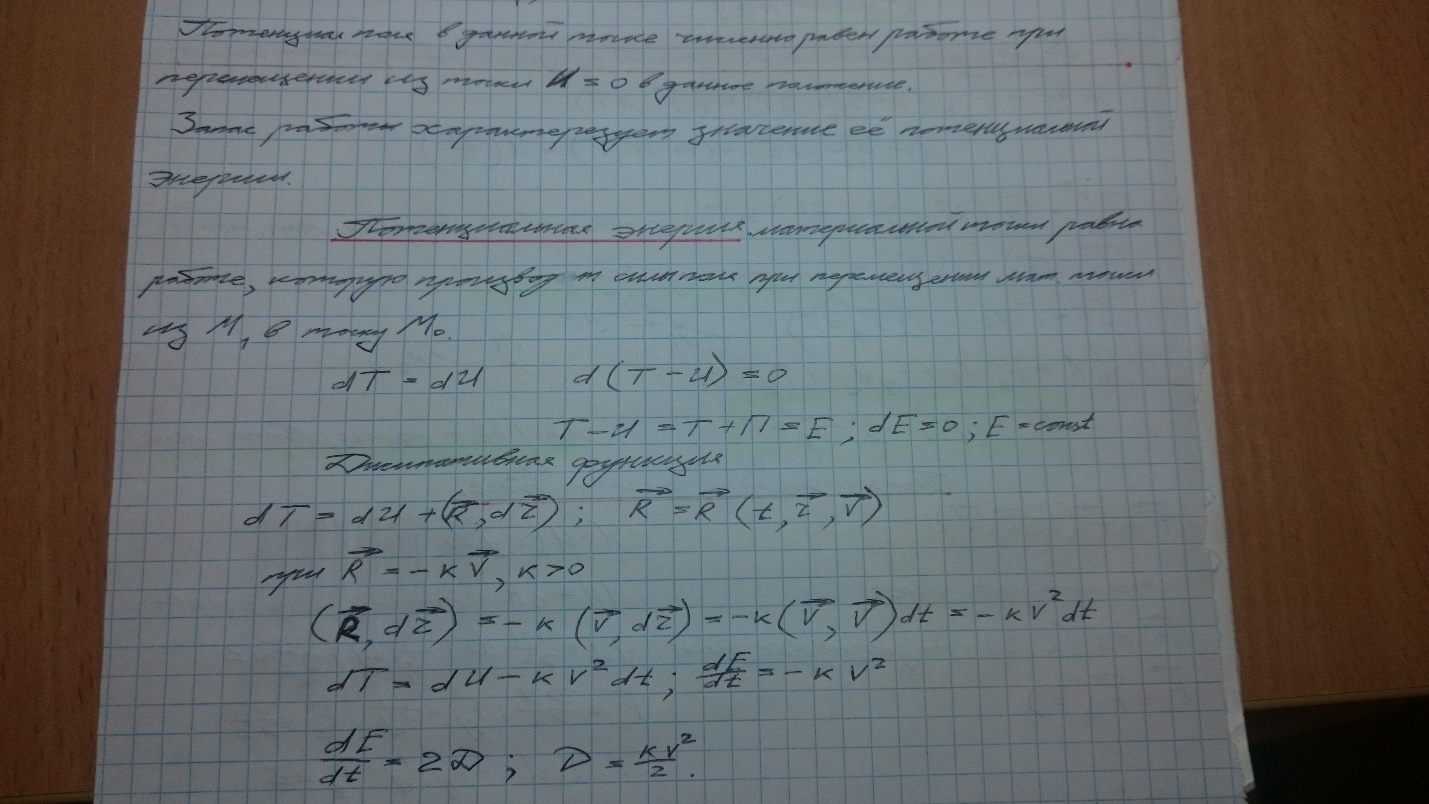 Потенциал поля в данной точке численно равен работе при
перемещении из точки U = 0 в данное положение.
Запас работы характерезует значение её потенциальной
энергии.
Потенциальная энергия материальной точки равна
работе, которую производят силы поля при перемещении мат. точки
из M₁ в точку M₀.
dT = dU d(T − U) = 0
T − U = T + П = E ; dE = 0 ; E = const
Диссипативная функция
dT = dU + (R⃗, dr⃗) ; R⃗ = R⃗ (t, r⃗, V⃗)
при R⃗ = − к V⃗, к > 0
(R⃗, dr⃗) = − к (V⃗, dr⃗) = − к (V⃗, V⃗) dt = − к V² dt
dT = dU − к V² dt ; dE/dt = − к V²
dE/dt = 2D ; D = кV²/2.